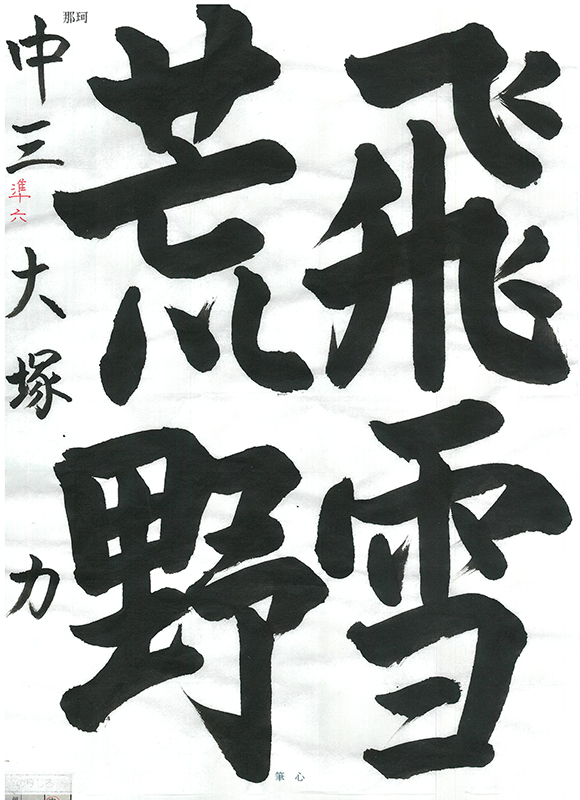 飛雪
荒野
那珂
中三 準六 大塚 力
心筆